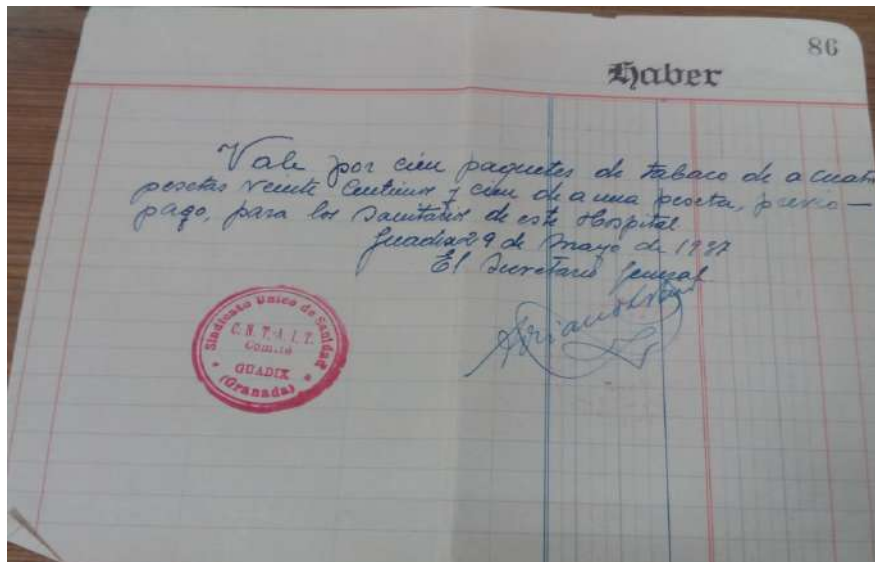 86
Haber
Vale por cien paquetes de tabaco de a cuatro
pesetas veinte centimos y cien de a una peseta, previo —
pago, para los Sanitarios de este Hospital
Guadix 29 de Mayo de 1937
El Secretario General
Sindicato Unico de Sanidad
C. N. T. A. I. T.
Comité
GUADIX
(Granada)